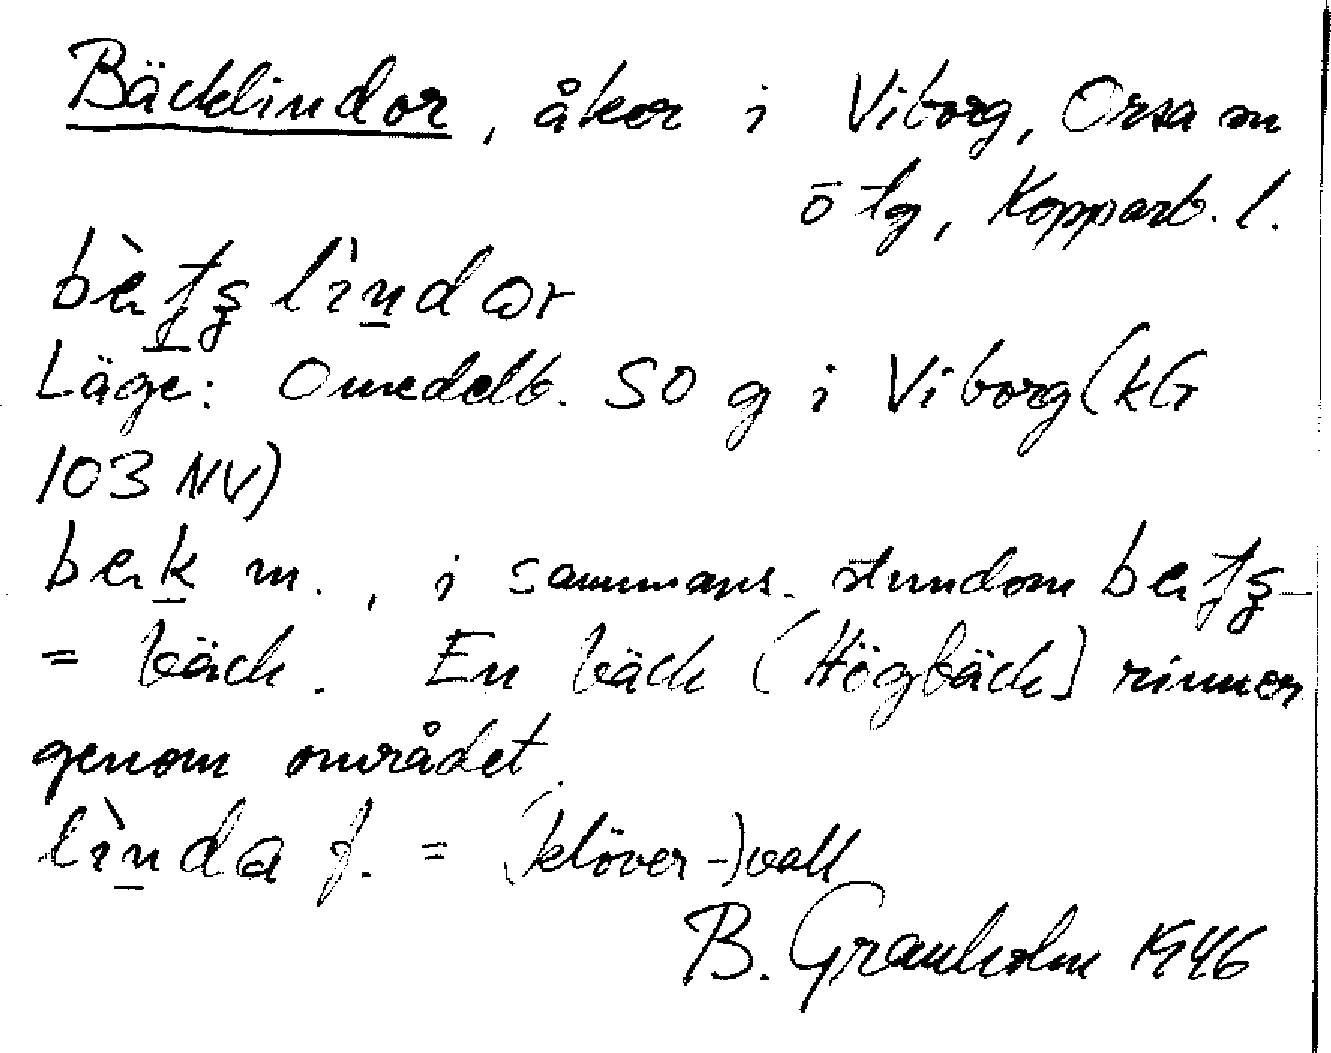 Bäcklindor, åker i Viborg, Orsa sn
ö tg, Kopparb. l.
Läge: Omedelb. SO g i Viborg (kG
103 NV)
bek m., i sammans. stundom
= bäck. En bäck (Högbäck) rinner
genom området.
lìnda f. = (klöver-)vall
B. Granholm 1946